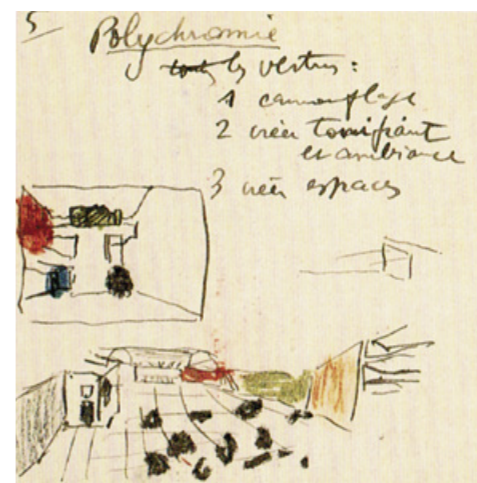 5
Polychromie
~~tout~~ les vertus :
1 camouflage
2 créer tonifiant
et ambiance
3 créer espaces